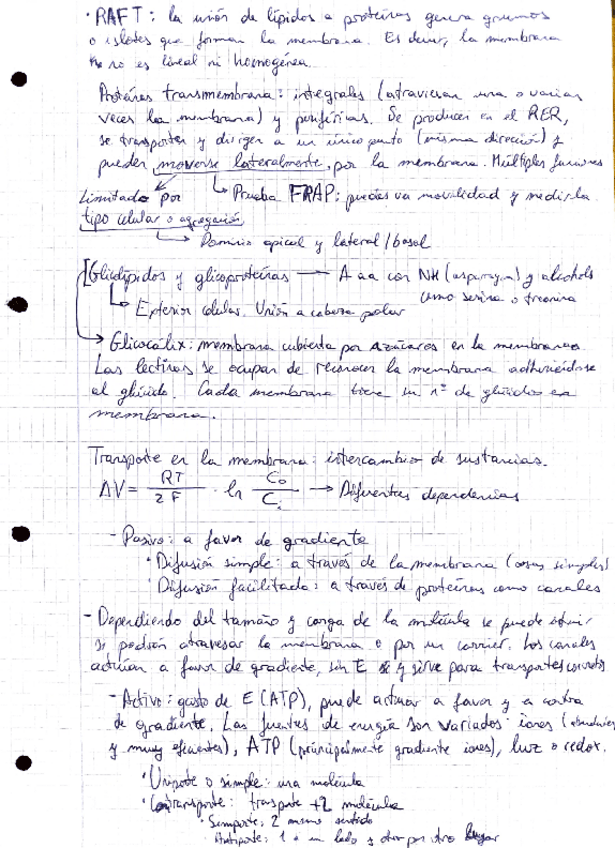 · RAFT: la unión de lípidos a proteínas genera grumos
o islotes que forman la membrana. Es decir, la membrana
no es lineal ni homogénea.
Proteínas transmembrana: integrales (atraviesan una o varias
veces la membrana) y periféricas. Se producen en el RER,
se transportan y dirigen a un único punto (misma dirección) y
pueden moverse lateralmente por la membrana. Múltiples funciones
Limitado por
tipo celular o agregación
→ Prueba FRAP: puedes va movilidad y medirla.
→ Dominio apical y lateral/basal
Glicolípidos y glicoproteínas → A aa con NH (asparagina) y alcohols
como serina o treonina
→ Exterior células. Unión a cabeza polar
→ Glicocalix: membrana cubierta por azúcares en la membrana.
Las lectinas se ocupan de reconocer la membrana adhiriéndose
al glúcido. Cada membrana tiene un nº de glúcidos en
membrana.
Transporte en la membrana: intercambio de sustancias.
ΔV = RT / 2F · ln C₀ / Cᵢ → Diferentes dependencias
- Pasivo: a favor de gradiente
· Difusión simple: a través de la membrana (cosas simples)
· Difusión facilitada: a través de proteínas como canales
- Dependiendo del tamaño y carga de la molécula se puede
si podrán atravesar la membrana o por un carrier. Los canales
actúan a favor de gradiente, sin E y sirve para transportes concretos
- Activo: gasto de E (ATP), puede actuar a favor y a contra
de gradiente. Las fuentes de energía son variados: iones (abundantes
y muy eficientes), ATP (principalmente gradiente iones), luz o redox.
· Uniporte o simple: una molécula
· Cotransporte: transporte +2 moléculas
· Simporte: 2 mismo sentido
· Antiporte: 1 a un lado y otro por otro lugar